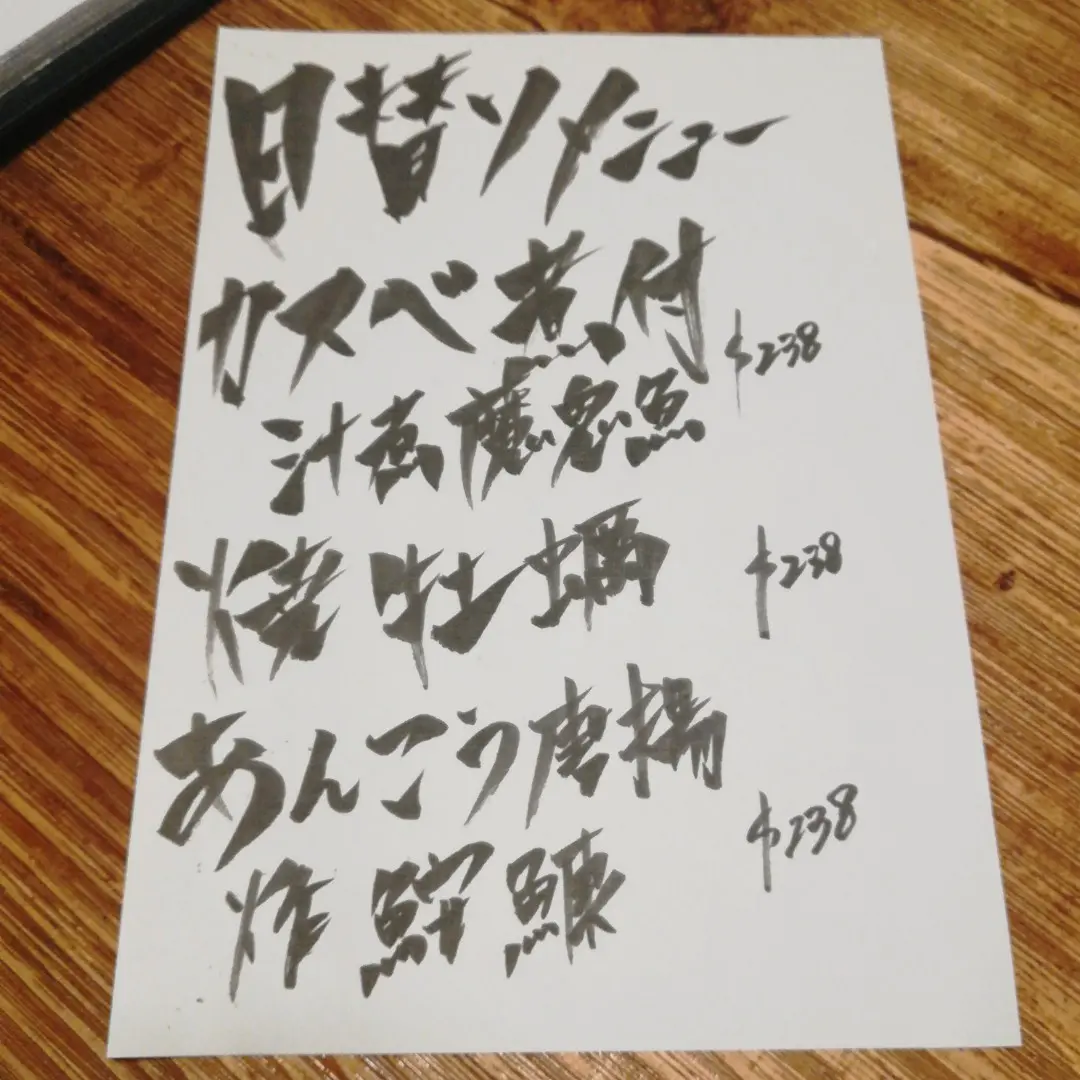 日替りメニュー
カスベ煮付
$238
汁煮魔鬼魚
焼牡蠣
$238
あんこう唐揚
$238
炸鮟鱇